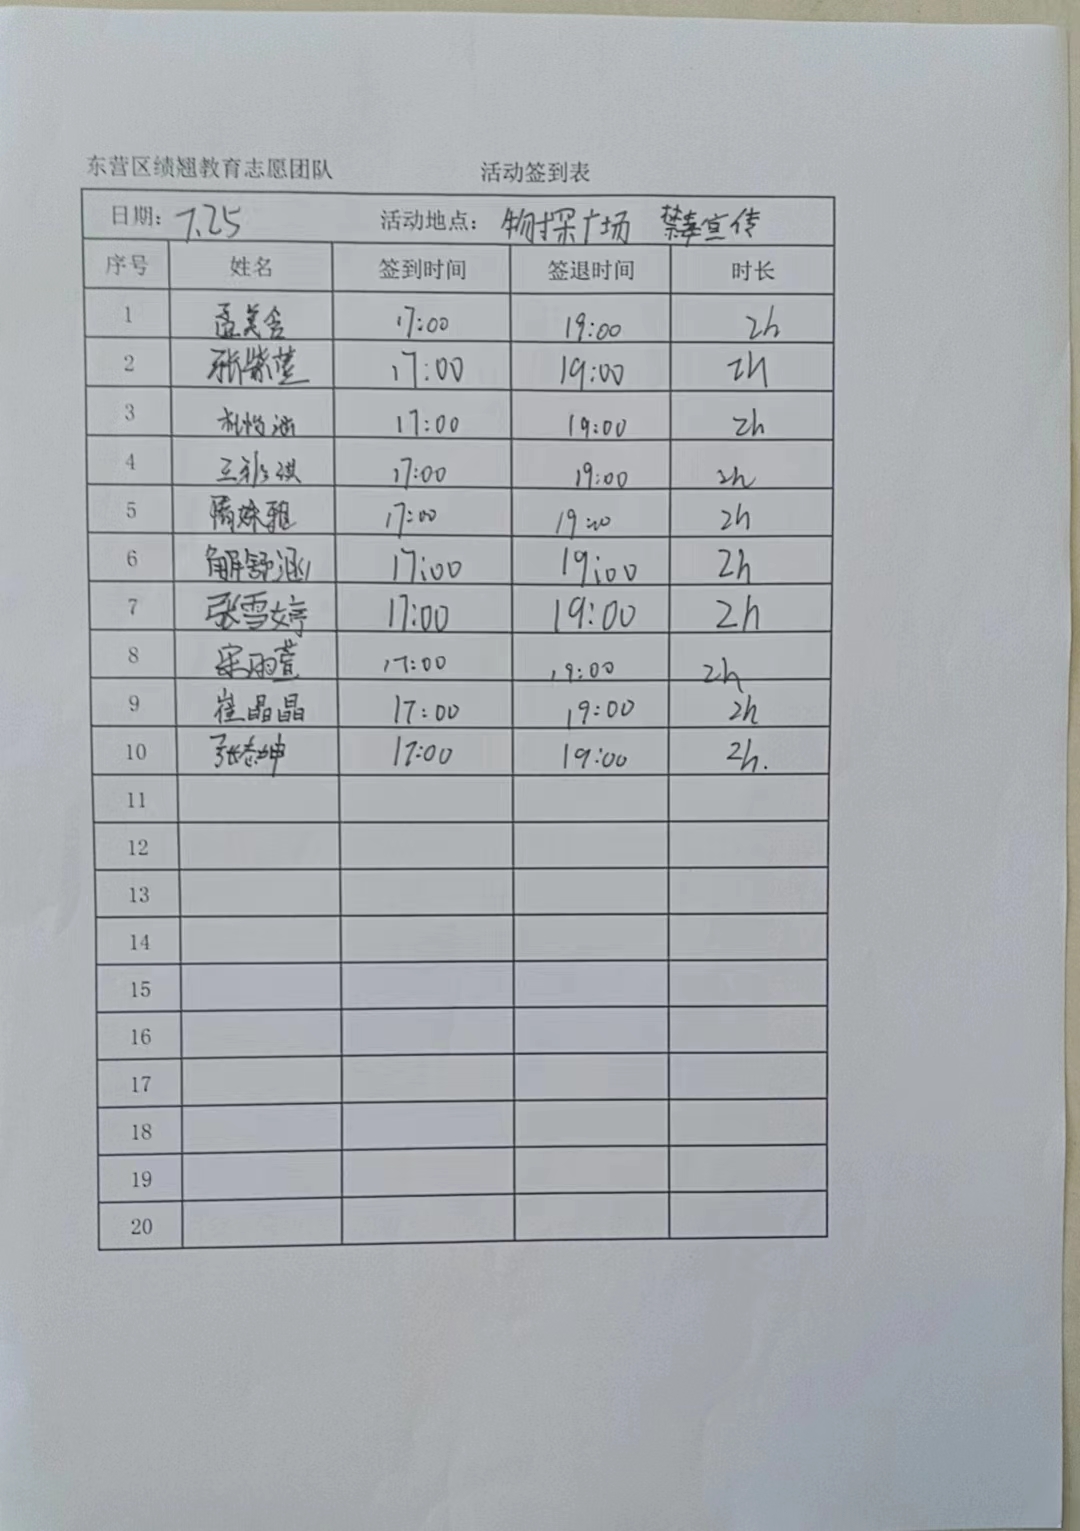 东营区绩翘教育志愿团队 活动签到表
日期: 7.25 活动地点: 物探广场 禁毒宣传
序号 姓名 签到时间 签退时间 时长
1 17:00 19:00 2h
2 张紫萱 17:00 19:00 2h
3 17:00 19:00 2h
4 17:00 19:00 2h
5 17:00 19:00 2h
6 解舒涵 17:00 19:00 2h
7 张雪婷 17:00 19:00 2h
8 宋雨萱 17:00 19:00 2h
9 崔晶晶 17:00 19:00 2h
10 17:00 19:00 2h.
11
12
13
14
15
16
17
18
19
20